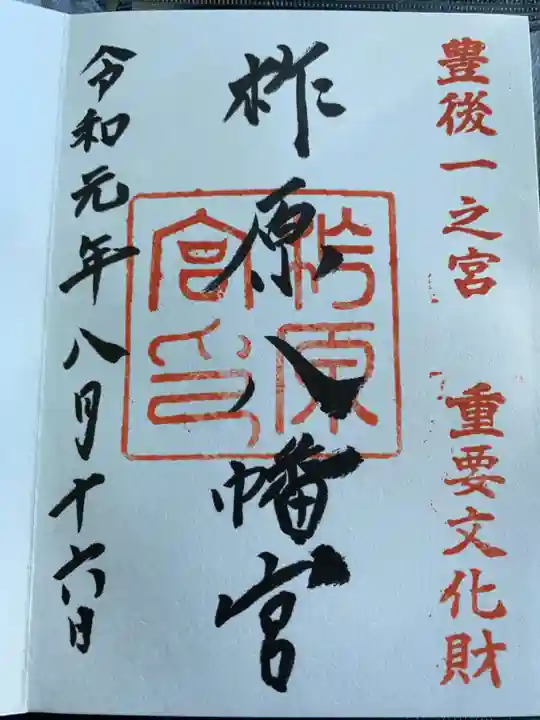 豊後一之宮 重要文化財
柞原八幡宮
柞原
宮印
令和元年八月十六日